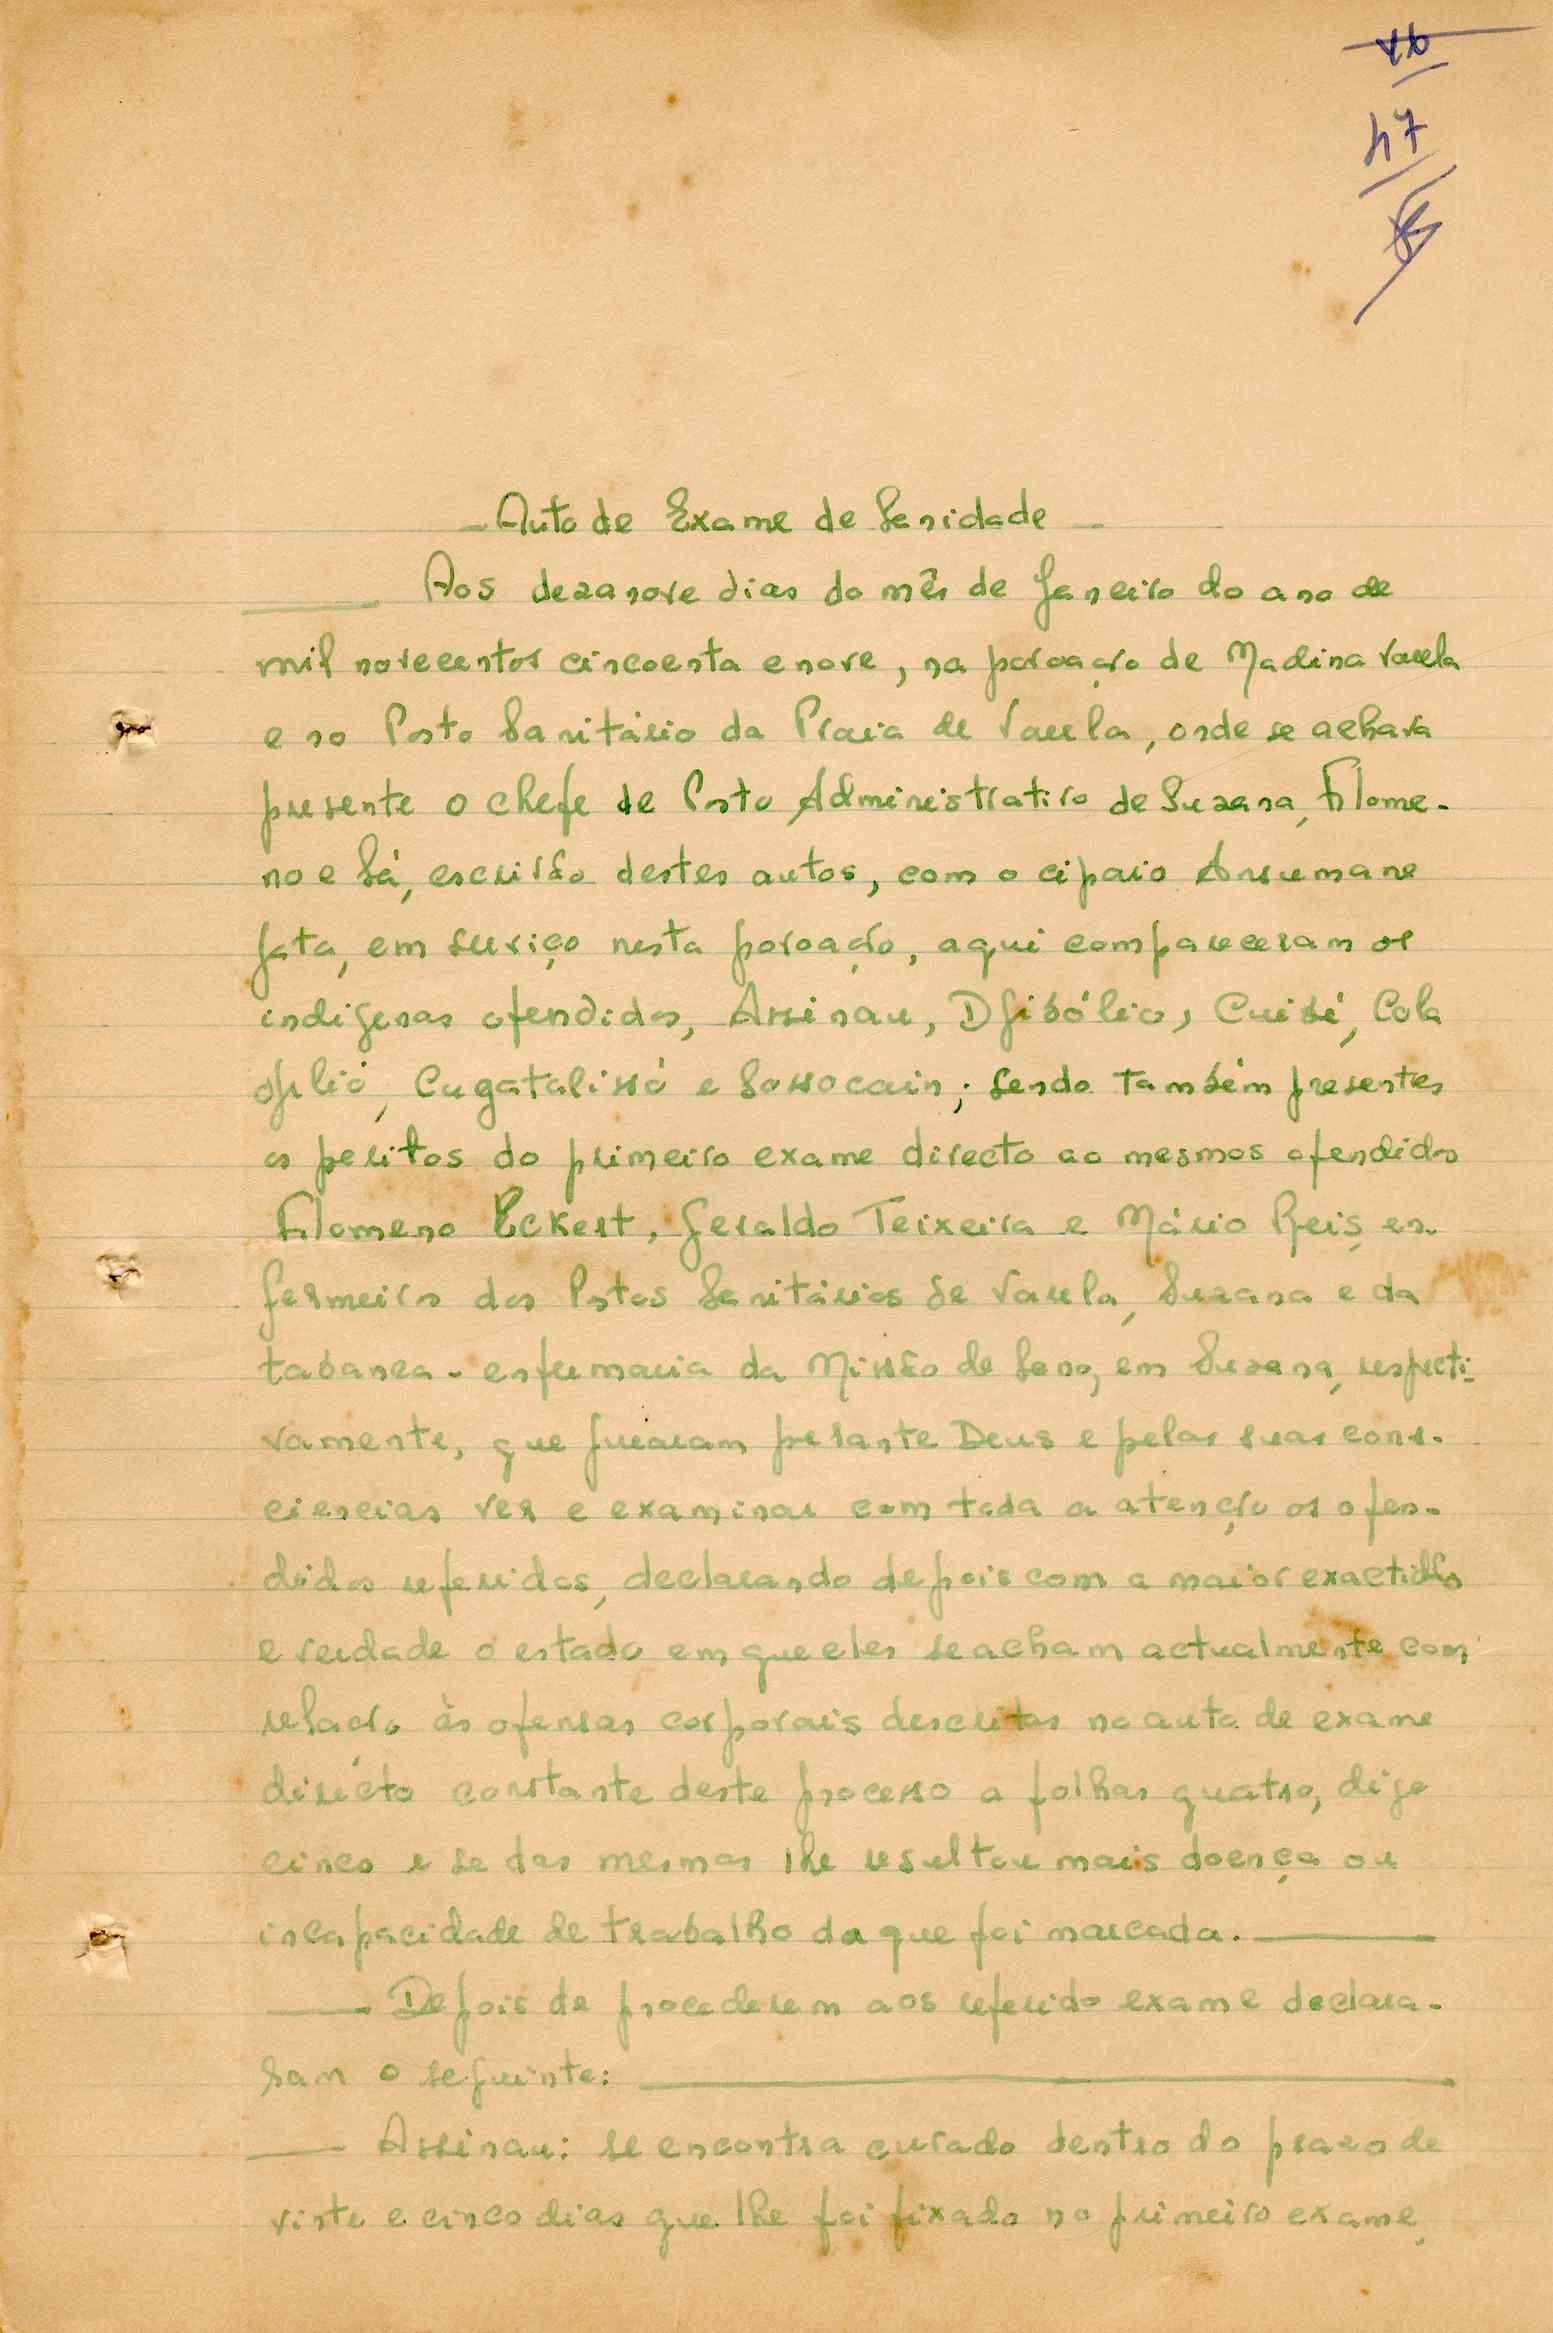 46
47
- Auto de Exame de Sanidade -
Aos dezanove dias do mês de Janeiro do ano de
mil novecentos cincoenta e nove, na povoação de Madina Varela
e no Posto Sanitário da Praia de Varela, onde se achava
presente o chefe de Posto Administrativo de Suzana, Filome-
no e Sá, escrivão destes autos, com o cipaio Ansumane
Jata, em serviço nesta povoação, aqui compareceram os
indígenas ofendidos, Assinau, Djibólio, Cuibi, Cola
Cugatalissó e Sossocain; sendo também presentes
os peritos do primeiro exame directo ao mesmos ofendidos
Filomeno Eckert, Geraldo Teixeira e Mário Reis, en
fermeiros dos Postos Sanitários de Varela, Suzana e da
tabanca-enfermaria da Missão de Sono, em Suzana, respecti-
vamente, que juraram perante Deus e pelas suas cons-
ciencias ver e examinar com toda a atenção os ofen-
didos referidos, declarando depois com a maior exactidão
e verdade o estado em que eles se acham actualmente com
relação às ofensas corporais descritas no auto de exame
directo constante deste processo a folhas quatro, digo
cinco e se das mesmas lhe resultou mais doença ou
incapacidade de trabalho da que foi marcada.
Depois de procederem aos referido exame declara-
ram o seguinte:
Assinau: se encontra curado dentro do prazo de
vinte e cinco dias que lhe foi fixado no primeiro exame,